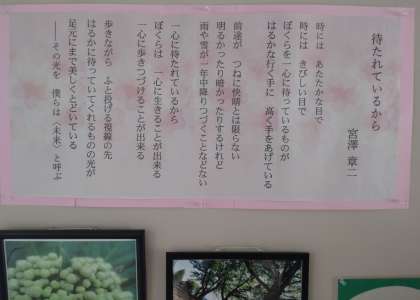 待たれているから
宮澤 章二
時には あたたかな目で
時には きびしい目で
ぼくらを一心に待っているものが
はるかな行く手に 高く手をあげている
前途が つねに快晴とは限らない
明るかったり暗かったりするけれど
雨や雪が一年中降りつづくことなどない
一心に待たれているから
ぼくらは 一心に生きることが出来る
一心に歩きつづけることが出来る
歩きながら ふと投げる視線の先
はるかに待っていてくれるものの光が
足元にまで美しくとどいている
――その光を 僕らは〈未来〉と呼ぶ